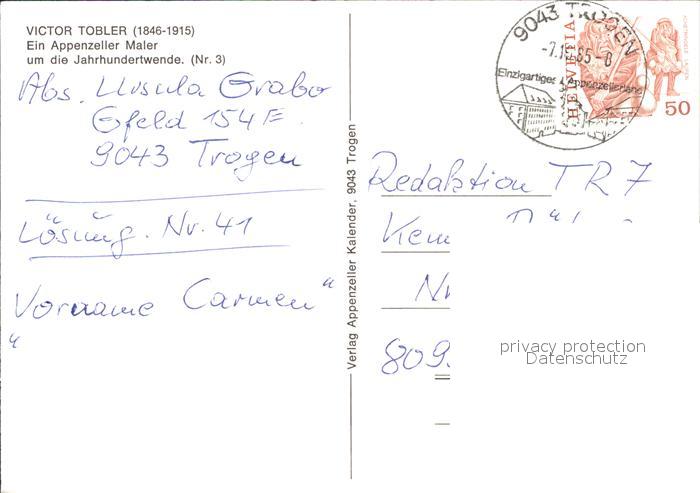 VICTOR TOBLER (1846-1915)
Ein Appenzeller Maler
um die Jahrhundertwende. (Nr. 3)
Abs. Ursula Grabo
Gfeld 154 E.
9043 Trogen
Lösung. Nr. 41
Vorname Carmen"
"
Verlag Appenzeller Kalender, 9043 Trogen
9043 TROGEN
Einzigartiges Appenzellerland
HELVETIA
50
Redaktion TR 7
Kem
Nr
809.
privacy protection
Datenschutz